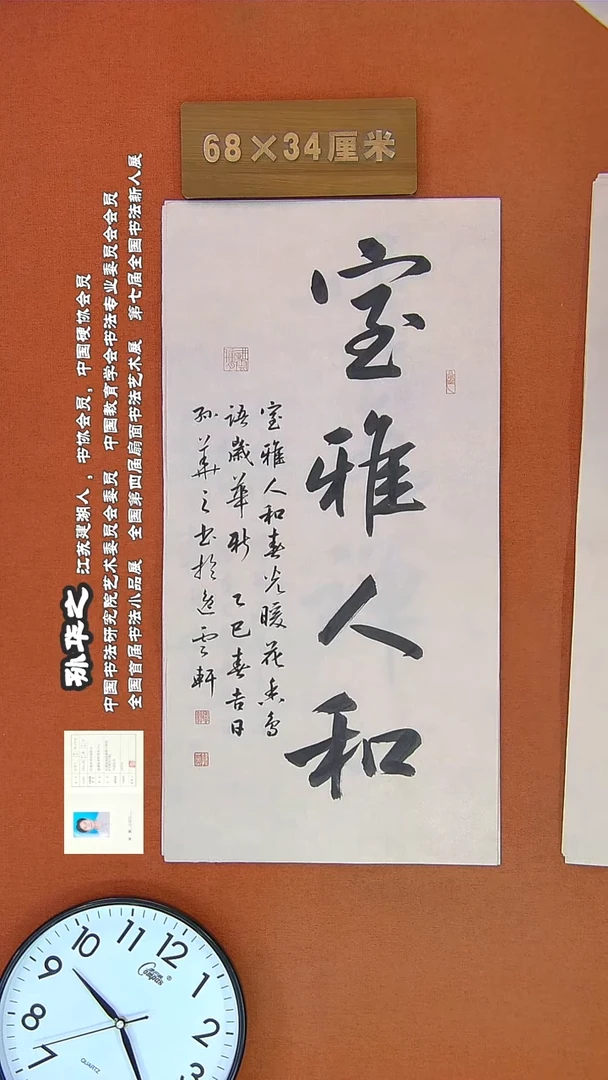 68×34厘米
室雅人和
室雅人和春光暖花香鸟
语岁华新 乙巳春吉日
孙华之书于逸云轩
孙华之 江苏建湖人，书协会员，中国硬协会员
中国书法研究院艺术委员会委员 中国教育学会书法专业委员会会员
全国首届书法小品展 全国第四届扇面书法艺术展 第七届全国书法新人展
10
11
12
1
2
3
7
8
9
QUARTZ